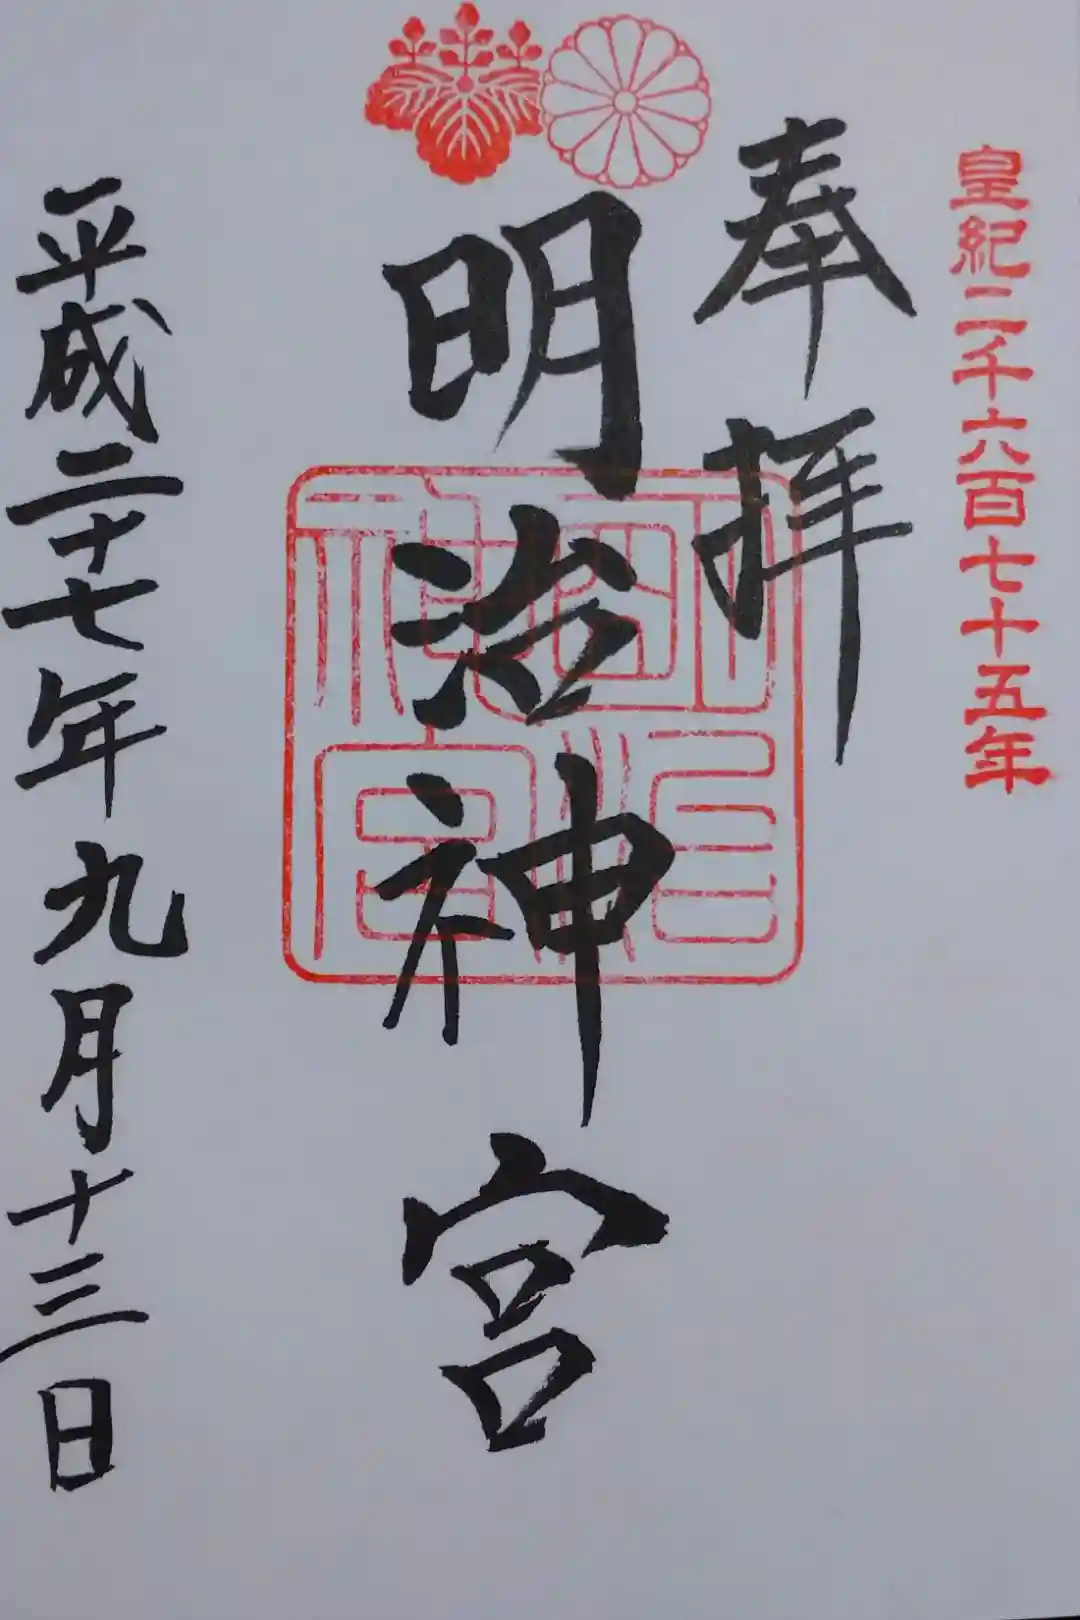 皇紀二千六百七十五年
奉拝
明治神宮
平成二十七年九月十三日